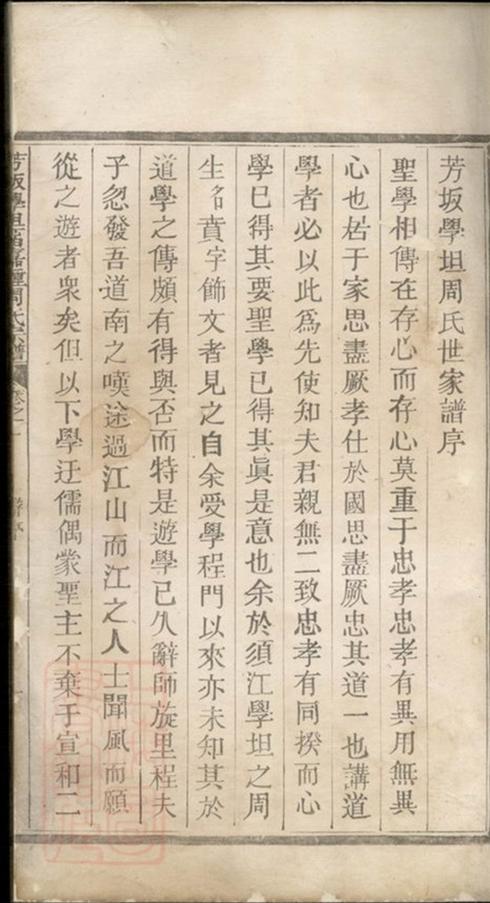 芳坂學坦周氏世家譜序
聖學相傳在存心而存心莫重于忠孝忠孝有異用無異
心也居于家思盡厥孝仕於國思盡厥忠其道一也講道
學者必以此爲先使知夫君親無二致忠孝有同揆而心
學已得其要聖學已得其眞是意也余於須江學坦之周
生名賁字飾文者見之自余受學程門以來亦未知其於
道學之傳頗有得與否而特是遊學已久辭師旋里程夫
子忽發吾道南之嘆途過江山而江之人士聞風而願
從之遊者衆矣但以下學迂儒偶蒙聖主不棄于宣和二
芳坂學坦 周氏宗譜 卷之一